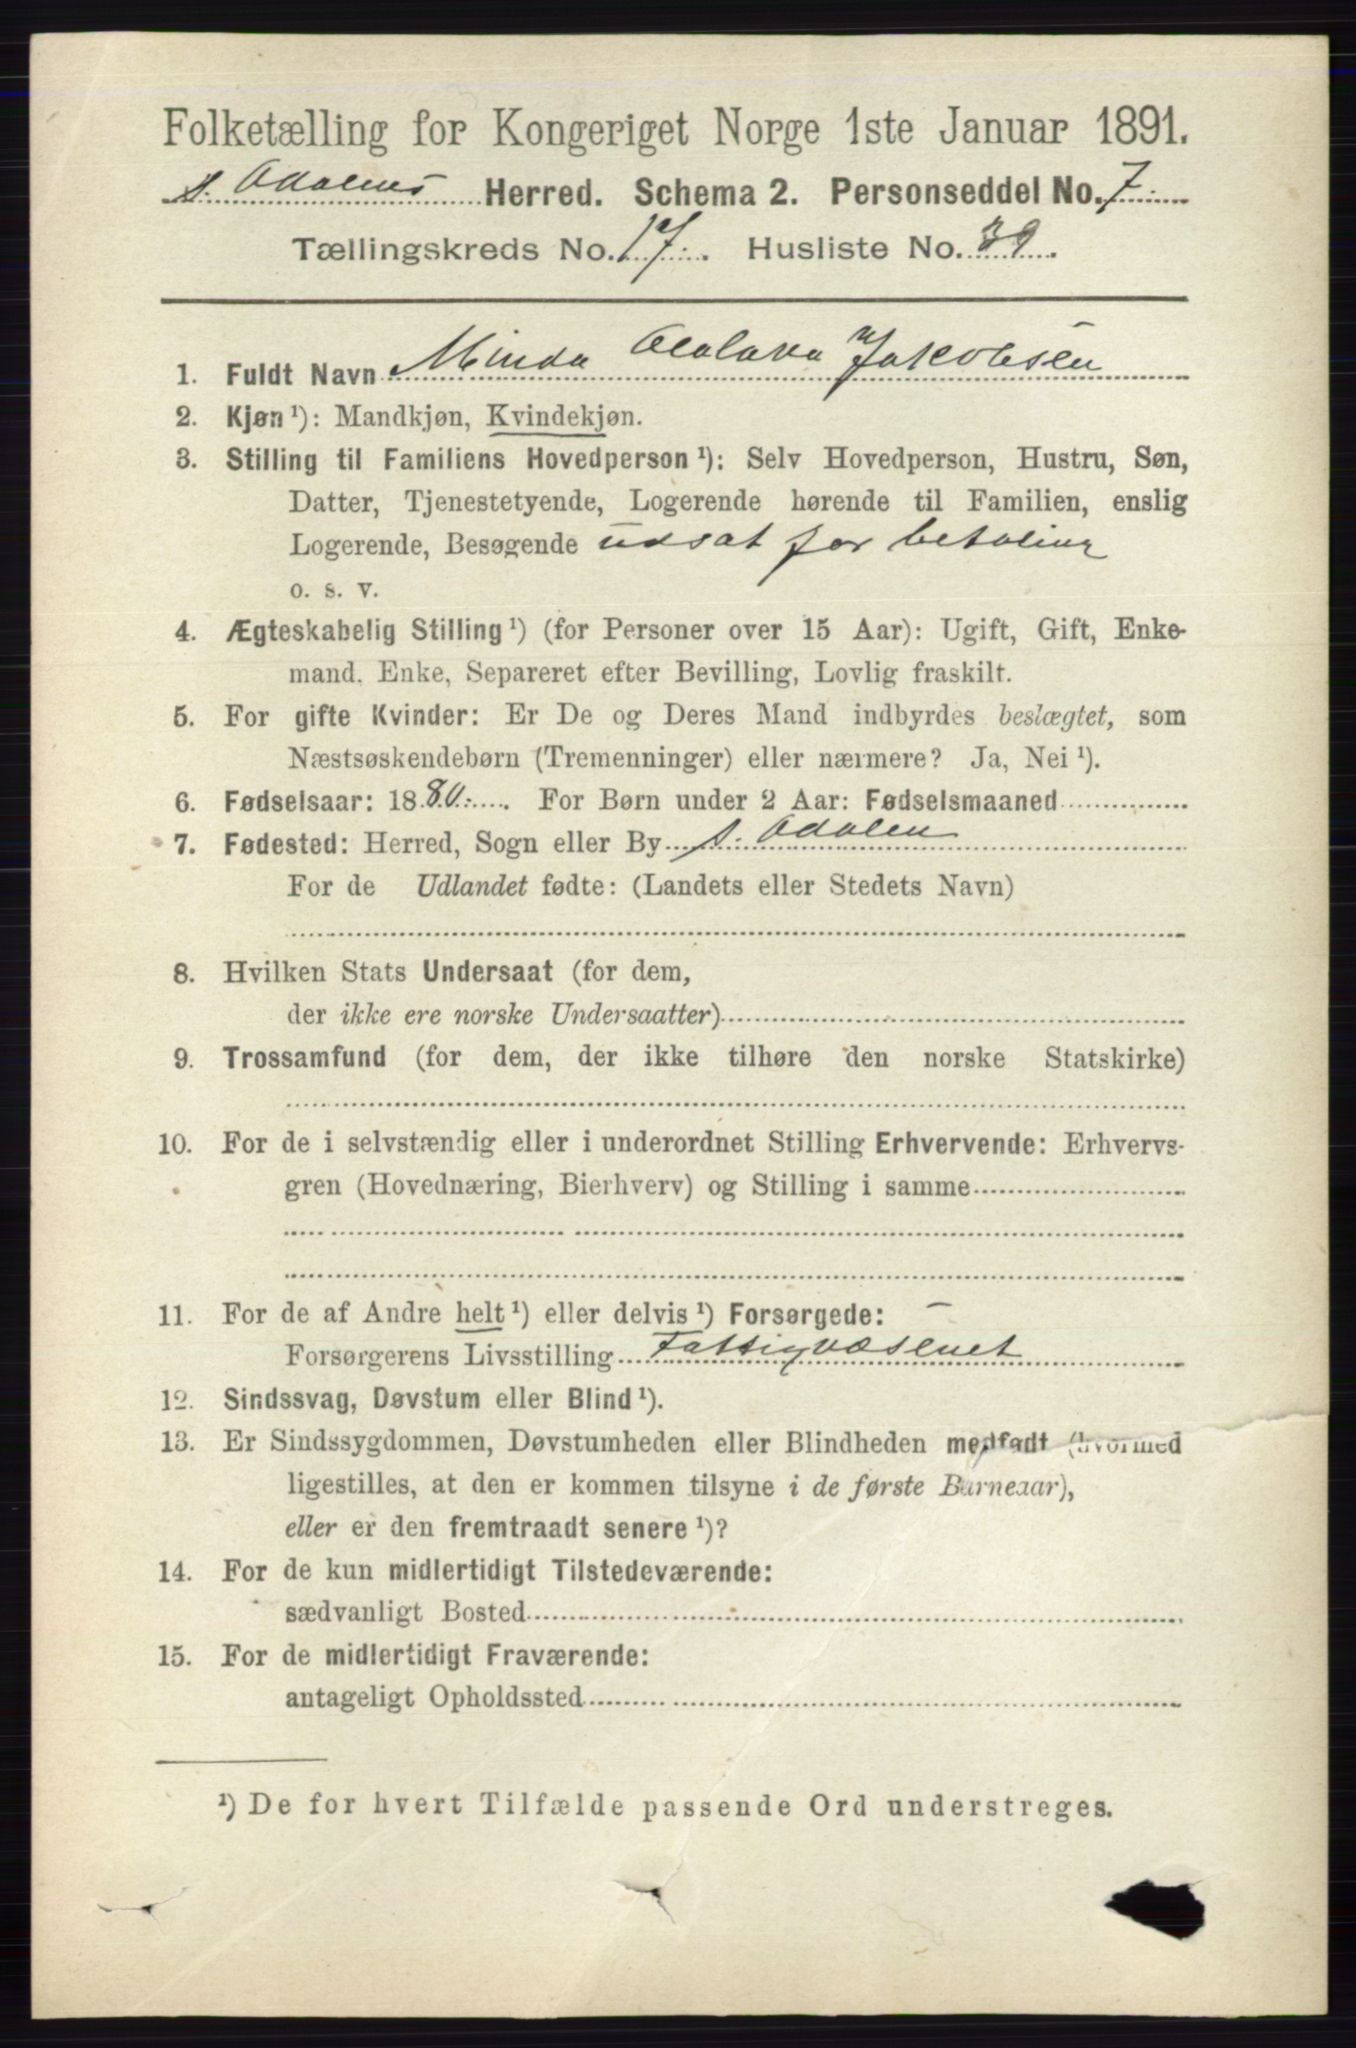 Folketælling for Kongeriget Norge 1ste Januar 1891.
s. Odalens Herred. Schema 2. Personseddel No. 7.
Tællingskreds No. 17. Husliste No. 39.
1. Fuldt Navn Minda Jakobsen
2. Kjøn ¹): Mandkjøn, Kvindekjøn.
3. Stilling til Familiens Hovedperson ¹): Selv Hovedperson, Hustru, Søn,
Datter, Tjenestetyende, Logerende hørende til Familien, enslig
Logerende, Besøgende udsat for betaling
o. s. v.
4. Ægteskabelig Stilling ¹) (for Personer over 15 Aar): Ugift, Gift, Enke-
mand, Enke, Separeret efter Bevilling, Lovlig fraskilt.
5. For gifte Kvinder: Er De og Deres Mand indbyrdes beslægtet, som
Næstsøskendebørn (Tremenninger) eller nærmere? Ja, Nei ¹).
6. Fødselsaar: 1880. For Børn under 2 Aar: Fødselsmaaned
7. Fødested: Herred, Sogn eller By s. Odalen
For de Udlandet fødte: (Landets eller Stedets Navn)
8. Hvilken Stats Undersaat (for dem,
der ikke ere norske Undersaatter)
9. Trossamfund (for dem, der ikke tilhøre den norske Statskirke)
10. For de i selvstændig eller i underordnet Stilling Erhvervende: Erhvervs-
gren (Hovednæring, Bierhverv) og Stilling i samme
11. For de af Andre helt ¹) eller delvis ¹) Forsørgede: —
Forsørgerens Livsstilling Fattigvæsenet
12. Sindssvag, Døvstum eller Blind ¹).
13. Er Sindssygdommen, Døvstumheden eller Blindheden medfødt (hvormed
ligestilles, at den er kommen tilsyne i de første Barneaar),
eller er den fremtraadt senere ¹)?
14. For de kun midlertidigt Tilstedeværende:
sædvanligt Bosted
15. For de midlertidigt Fraværende:
antageligt Opholdssted
¹) De for hvert Tilfælde passende Ord understreges.